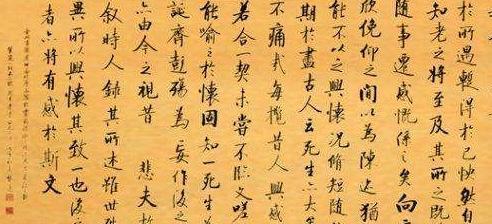 於所遇暫得於己怏然自
知老之將至及其所之既
隨事遷感慨係之矣向
欣俛仰之間以為陳迹猶
能不以之興懷況脩短隨
期於盡古人云死生亦大
不痛哉每攬昔人興感
若合一契未嘗不臨文
能喻之於懷固知一死生
誕齊彭殤為妄作後之
亦由今之視昔 悲夫故
敘時人錄其所述雖世殊
異所以興懷其致一也後
者亦將有感於斯文